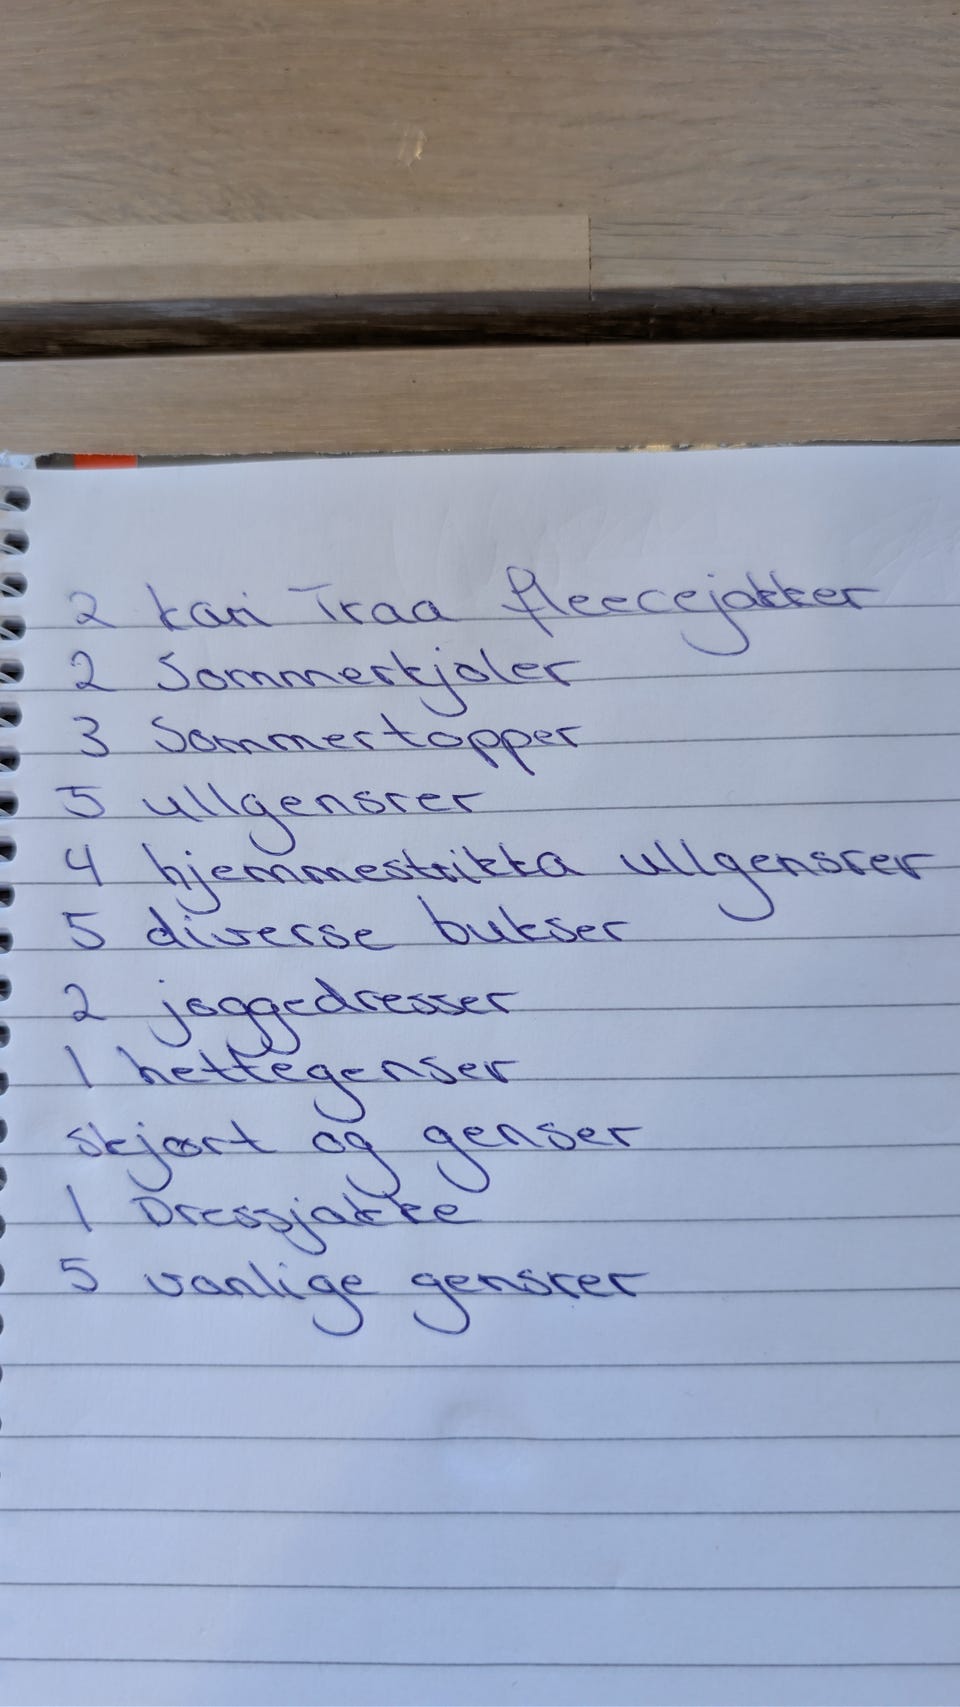 2 Kari Traa fleecejakker
2 Sommerkjoler
3 Sommertopper
5 ullgensrer
4 hjemmestrikka ullgensrer
5 diverse bukser
2 joggedresser
1 hettegenser
skjørt og genser
1 Dressjakke
5 vanlige gensrer